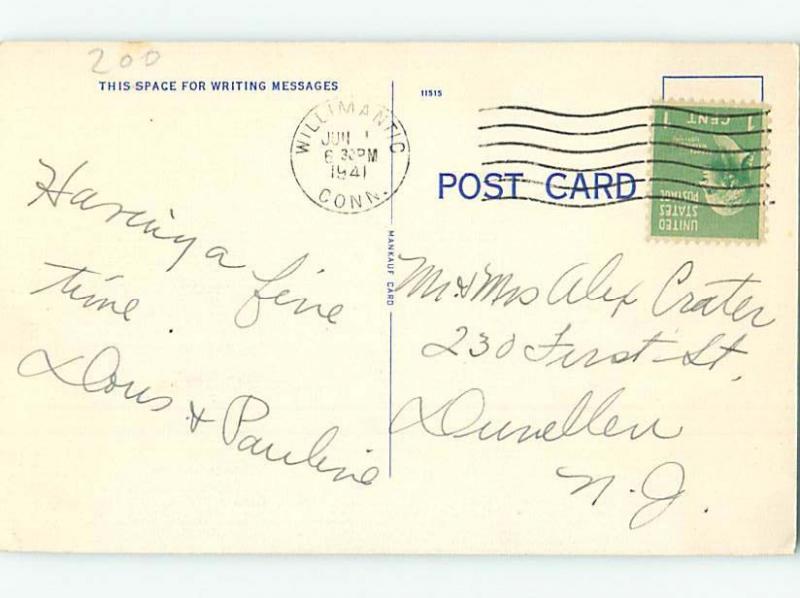 200
THIS SPACE FOR WRITING MESSAGES
11515
WILLIMANTIC
JUN 1
6 30PM
1941
CONN.
1 CENT 1
UNITED
STATES
POSTAGE
POST CARD
MANKAUF CARD
Having a fine
time.
Doris & Pauline
Mr. & Mrs Alex Crater
230 First St.
Dunellen
N. J.